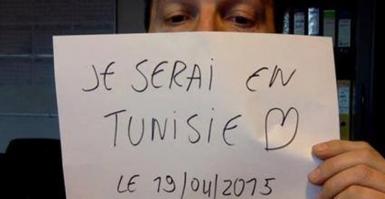 JE SERAI EN
TUNISIE ♡
LE 19/04/2015